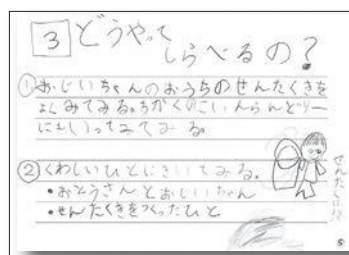 3 どうやって
しらべるの?
① おじいちゃんのおうちのせんたくきを
よくみてみる。ちかくのこいんらんどりー
にもいってみてみる。
② くわしいひとにきいてみる。
・おとうさんとおじいちゃん
・せんたくきをつくったひと
5